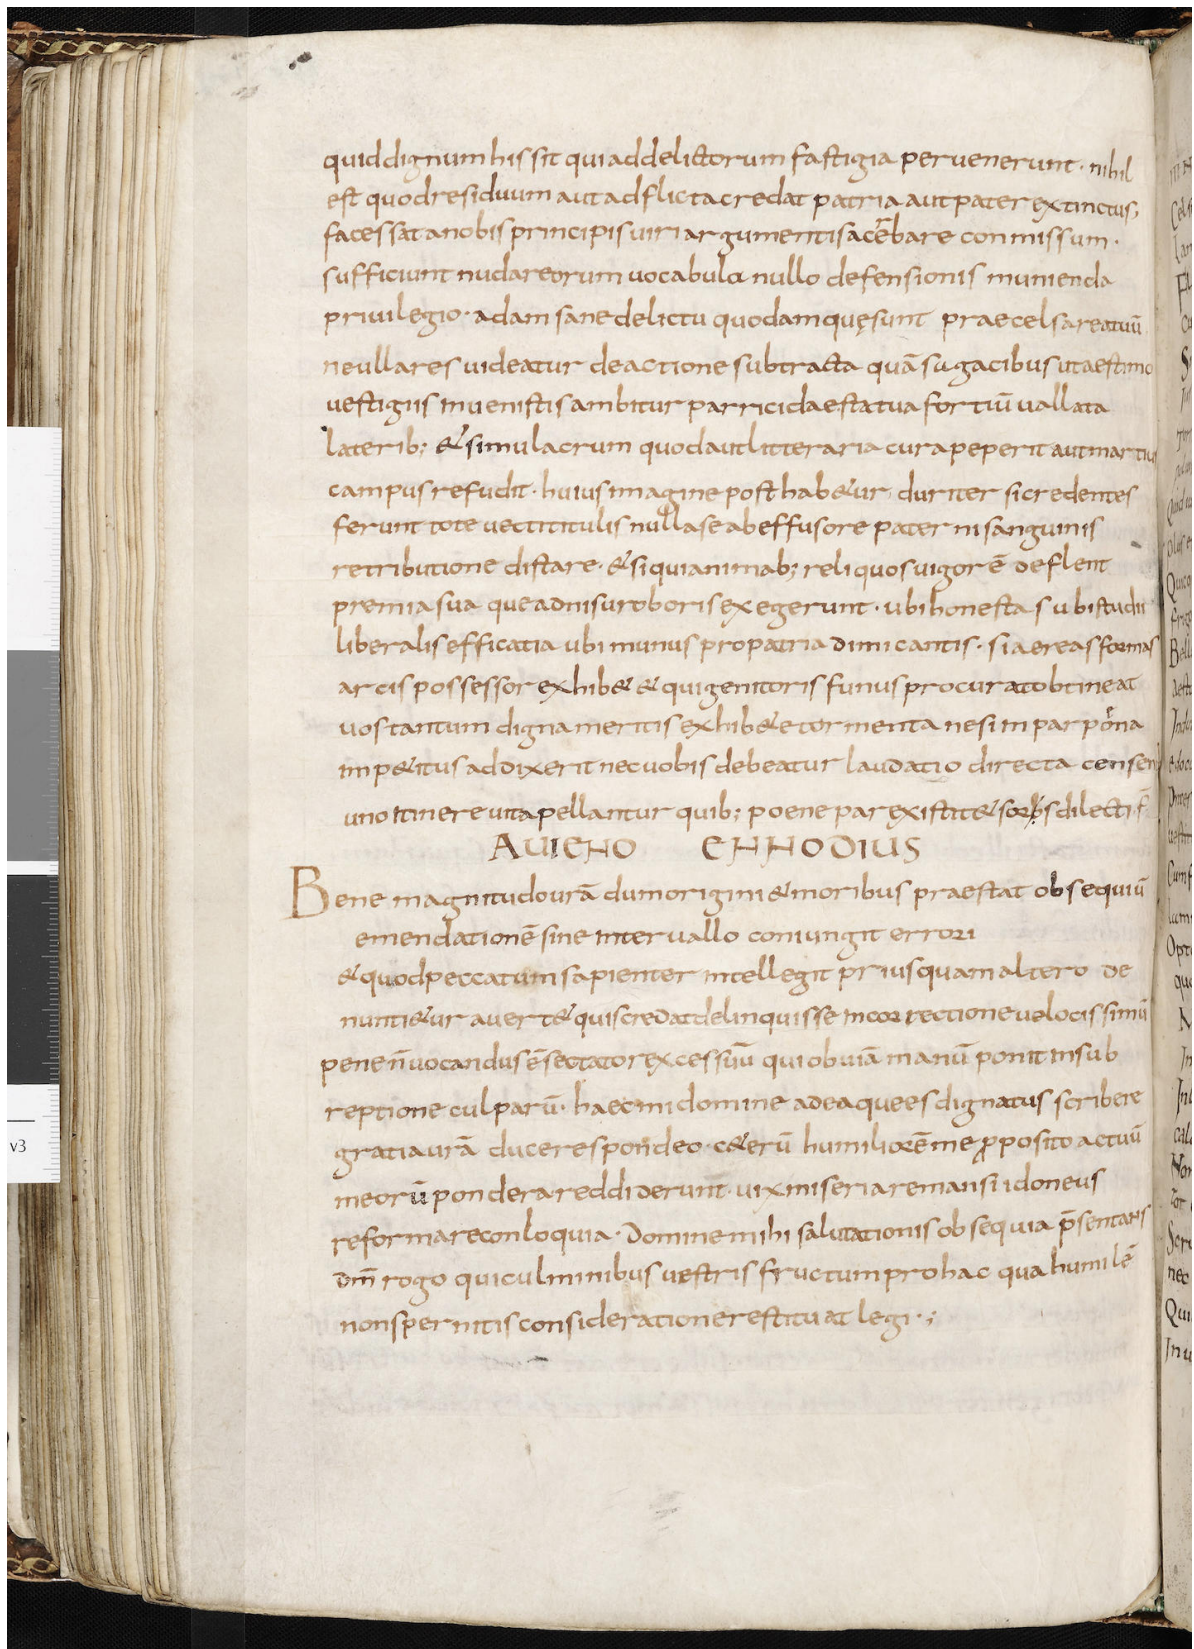 quid dignum his sit qui ad delictorum fastigia pervenerunt· nihil
est quod residuum aut adflicta credat patria aut pater extinctus;
facessat a nobis principis uiri argumentis acerbare conmissum·
sufficiunt nudare eorum vocabula nullo defensionis munienda
privilegio· adam sane delictu quodam quę sunt praecelsa reatuū
ne ulla res uideatur de actione subtracta quā sagacibus ut aestimo
vestigiis invenistis ambitur parricidae statua fortiū vallata
laterib; & simulacrum quod aut litteraria cura peperit aut martius
campus refudit· huius imagine posthab&ur duriter si credentes
ferunt tote vecti titulis nulla se ab effusore paterni sanguinis
retributione distare· & si qui animab; reliquos vigorē deflent
premia sua que adnisu roboris exegerunt· ubi honesta subi studii
liberalis efficatia ubi munus pro patria dimicantis· si aereas formas
arcis possessor exhib& & qui genitoris funus procurat obtineat
vos tantum digna meritis exhib&e tormenta nesi inpar poena
imp&itus addixerit nec vobis debeatur laudatio directa censeri
uno itinere uit apellantur quib; poene par existit & sors dilecti
AVIENO ENNODIUS
Bene magnitudo urā dum origini & moribus praestat obsequiū
emendationē sine intervallo coniungit errori
& quod peccatum sapienter intellegit priusquam altero de
nunti&ur avert& quis credat delinquisse in correctione velocissimū
pene n̄ vocandus ē sectator excessuū qui obviā manū ponit in sub
reptione culparū· haec mi domine ad ea que es dignatus scribere
gratia urā duce respondeo· c&erū humiliorē me pposito actuū
meorū pondera reddiderunt· uix miseria remansi idoneus
reformare conloquia· Domine mihi salutationis obsequia p̄sentans
dm̄ rogo qui culminibus vestris fructum pro hac qua humilē
non spernitis consideratione restituat legi·;